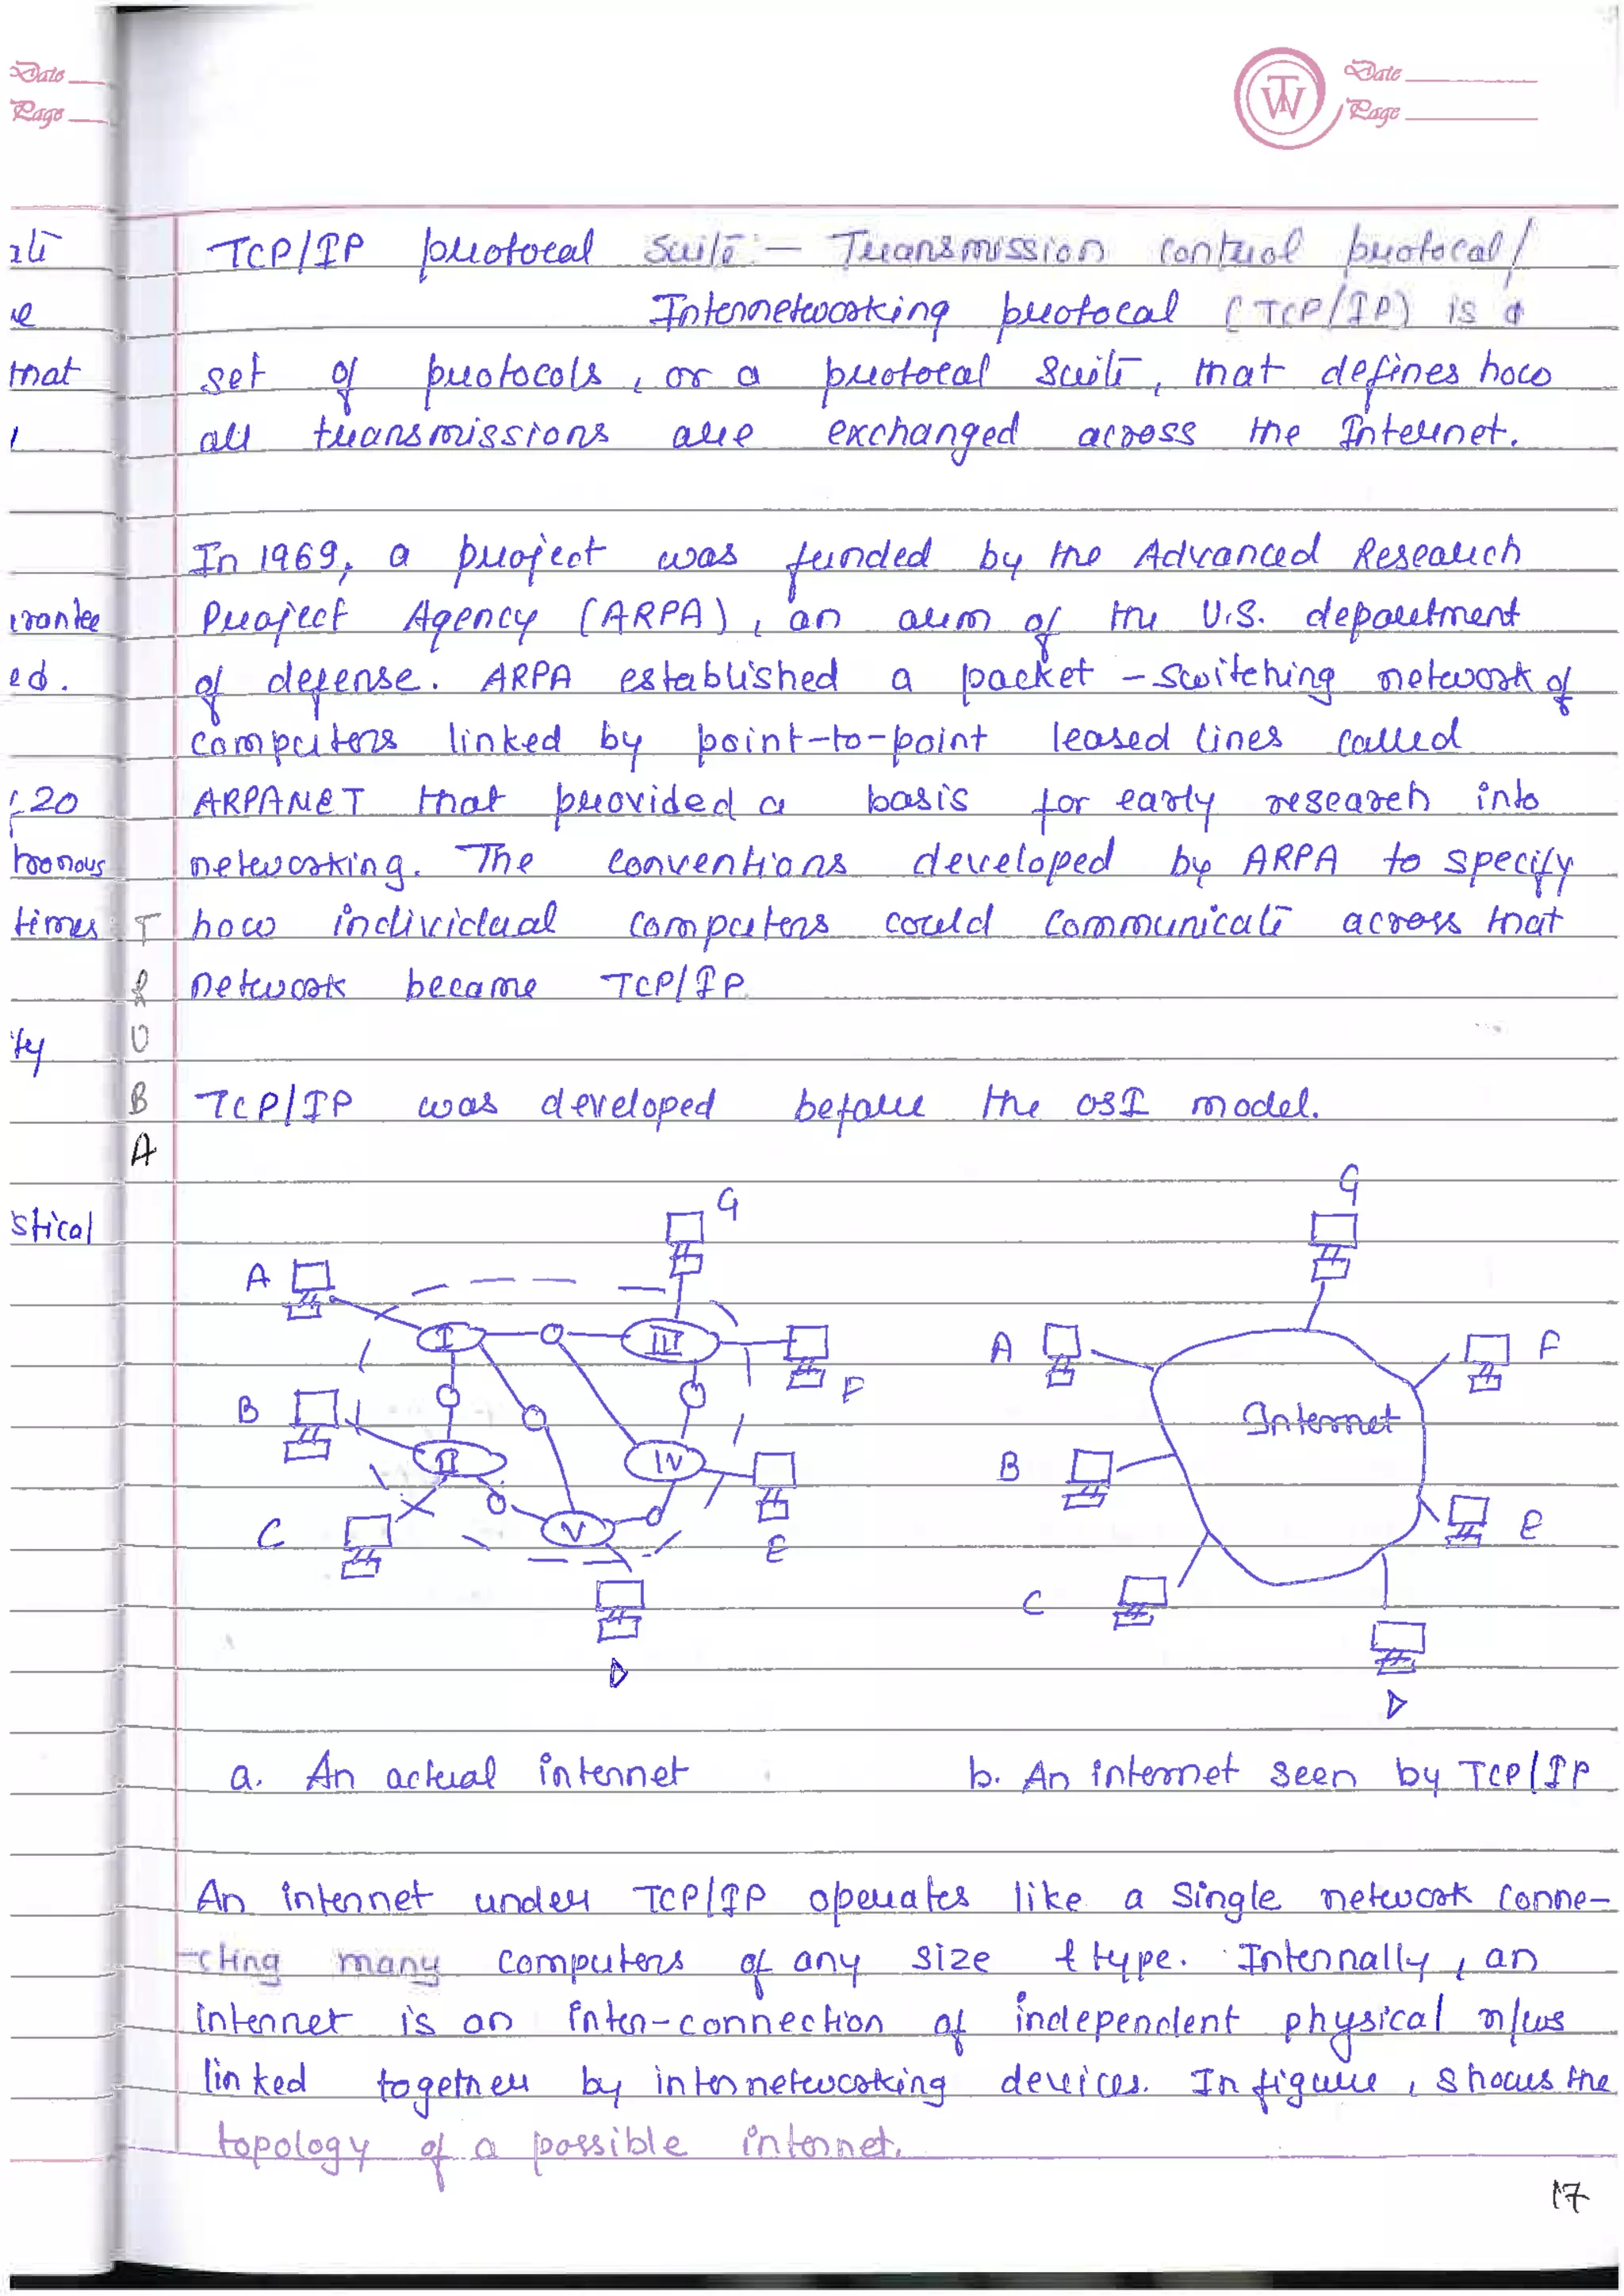 Date
Page
TW
Date
Page
TCP/IP protocal Suite :— Transmission control protocal/
Internetworking protocal (TCP/IP) is a
set of protocols, or a protocal suite, that defines how
all transmissions are exchanged across the Internet.
In 1969, a project was funded by the Advanced Research
Project Agency (ARPA), an arm of the U.S. department
of defense. ARPA established a packet -switching network of
computers linked by point-to-point leased lines called
ARPANET that provided a basis for early research into
networking. The conventions developed by ARPA to specify
how individual computers could communicate across that
network became TCP/IP.
TCP/IP was developed before the OSI model.
that
ed.
20
times
stical
T
R
U
B
A
G
A
I
III
F
B
II
IV
C
V
E
D
G
A
F
Internet
B
E
C
D
a. An actual internet
b. An internet seen by TCP/IP
An internet under TCP/IP operates like a single network conne-
-cting many computers of any size & type. Internally, an
internet is an inter-connection of independent physical n/ws
linked together by internetworking devices. In figure, shows the
topology of a possible internet.
17